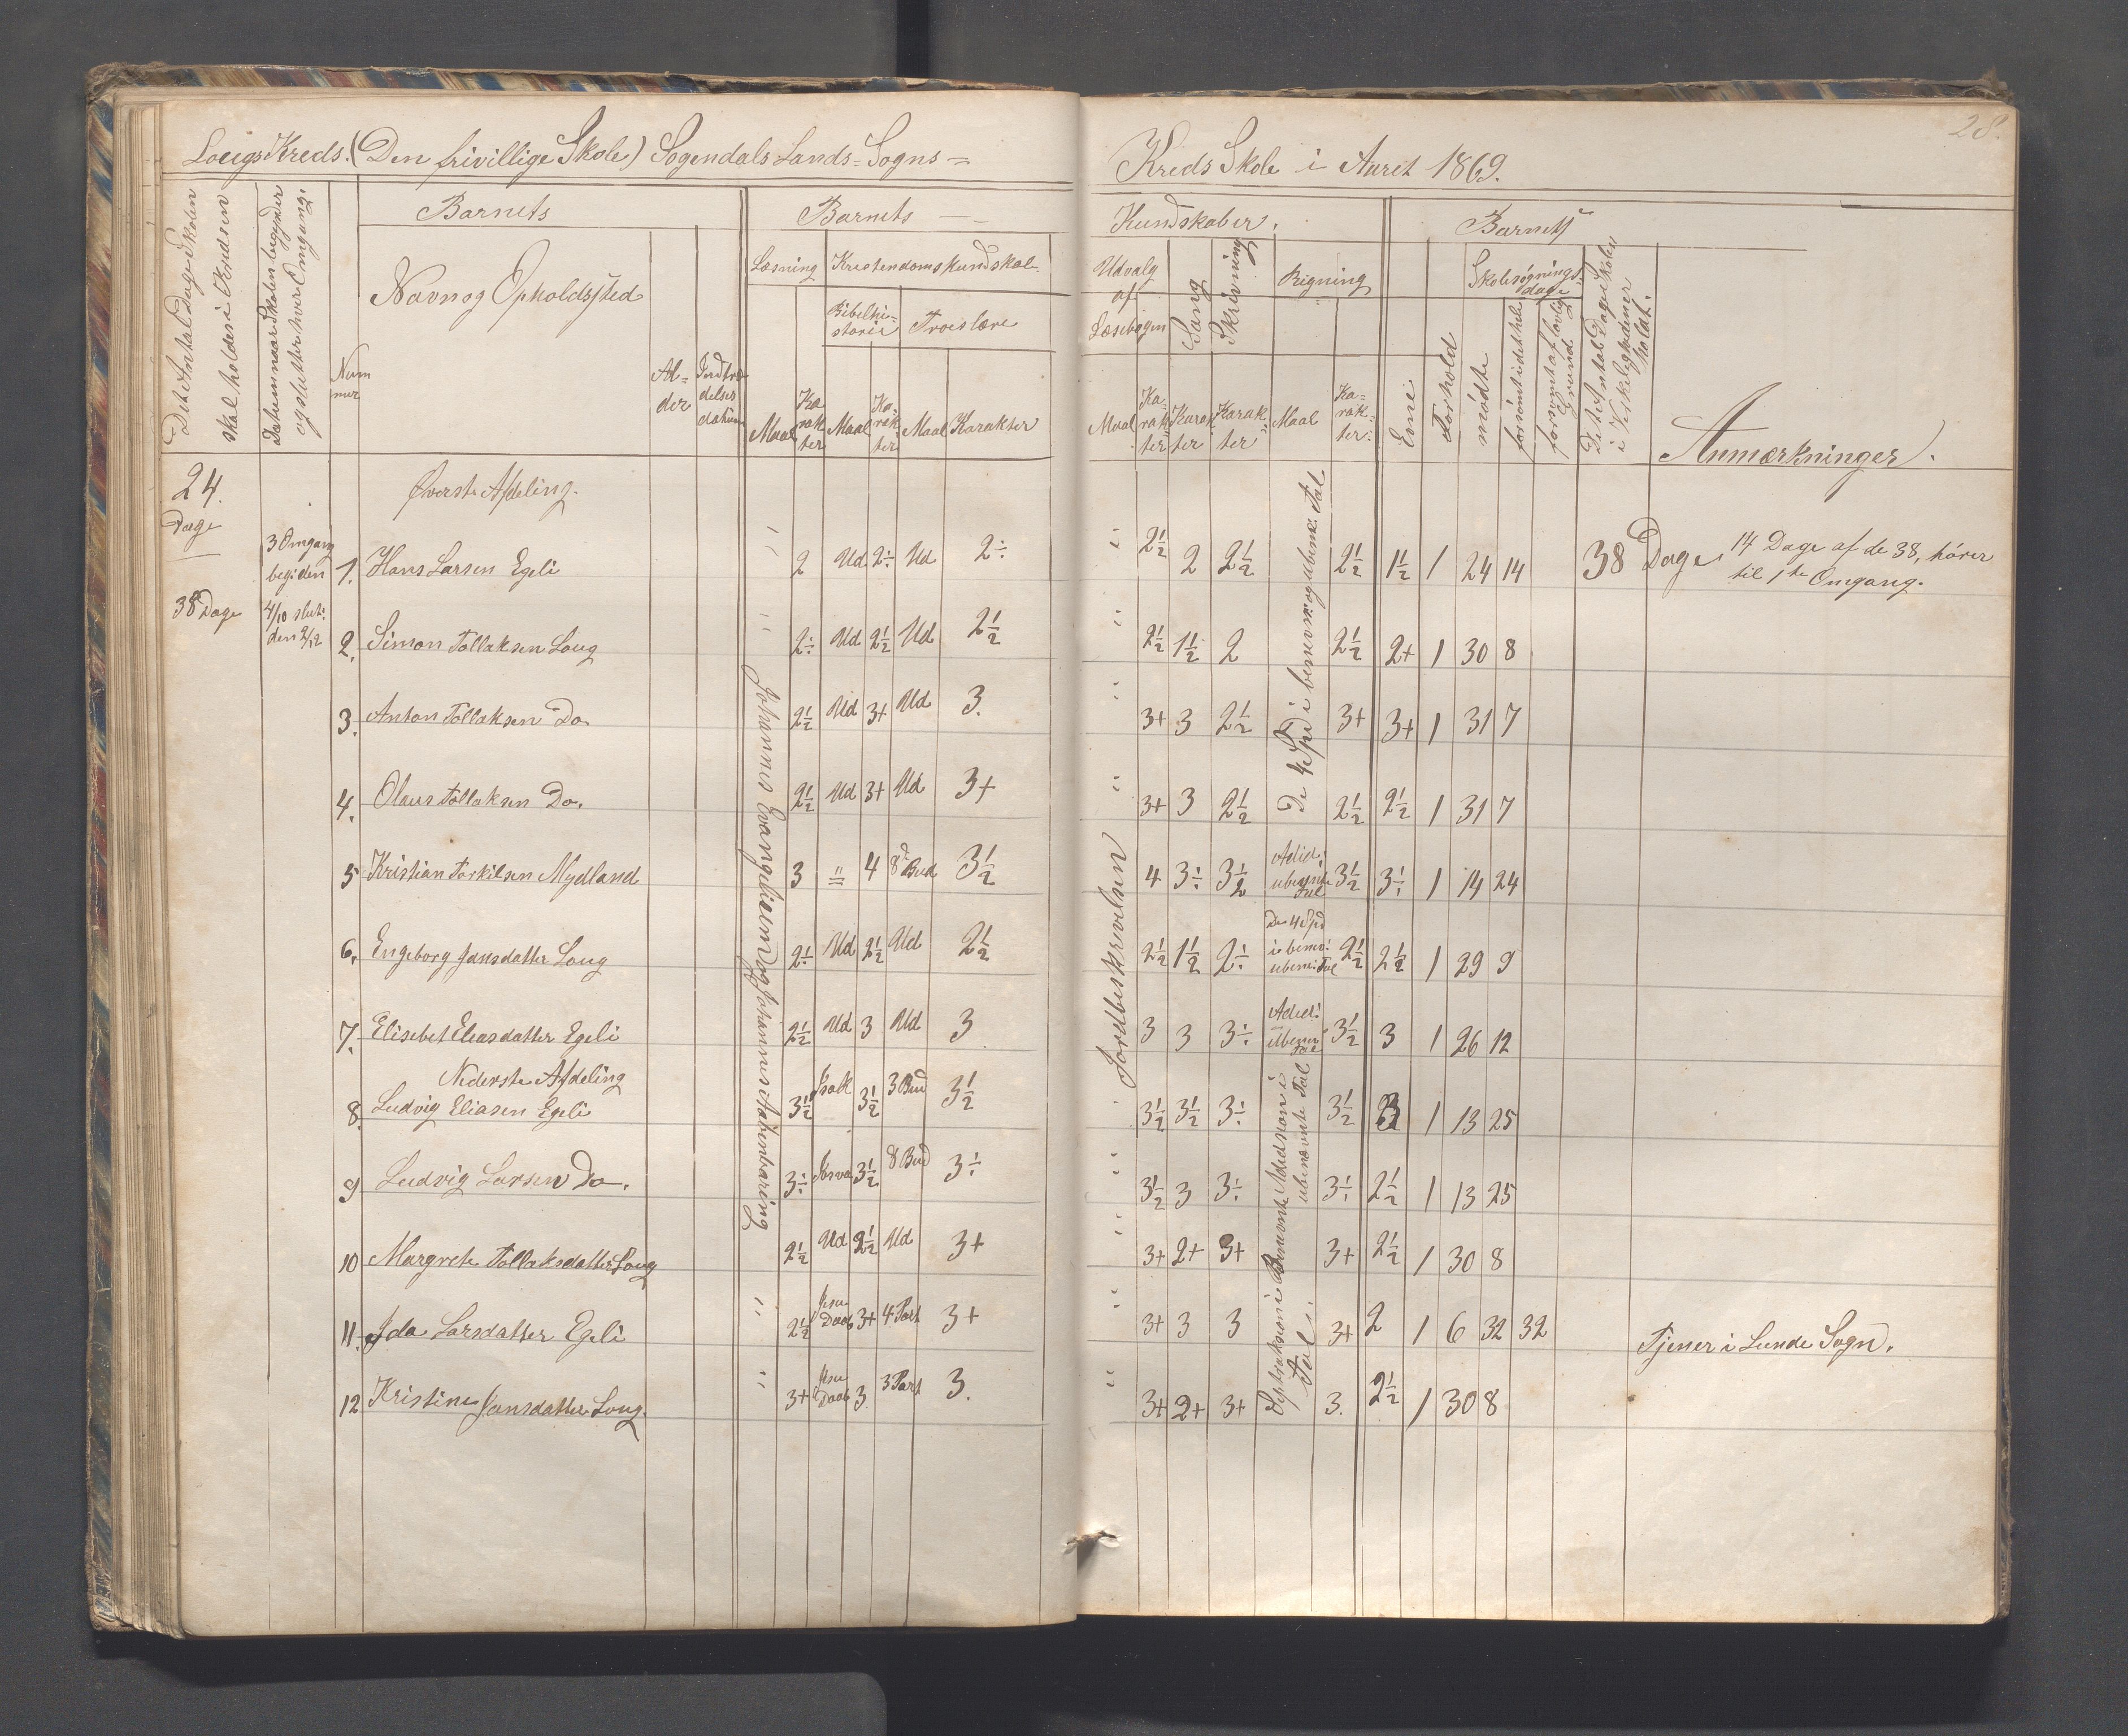 28.
Lougs Kreds. (Den frivillige Skole) Sogendals Lands-Sogns =
Kreds Skole i Aaret 1869.
Det Antal Dage Skolen skal holdes i Kredsen
Datum naar Skolen begynder og slutter hver Omgang.
Num mer
Barnets
Navn og Opholdssted
Al= der
Indtræ delses datum
Barnets
Læsning
Kristendomskundskab
Bibelhi= storie
Troeslære
Maal
Ka rak ter
Maal
Ka= rak ter
Maal
Karakter
Kundskaber.
Udvalg af Læsebogen
Sang
Skrivning
Regning
Maal
Ka= rak ter
Karak ter
Karak ter
Maal
Ka= rak= ter
Barnets
Evne
Forhold
Skolesøgnings dage
mødte
forsømt i det hele
forsømt af lovlig Grund
Det Antal Dage Skolen i Virkeligheden er holdt.
Anmærkninger.
24. Dage
38 Dage
3 Omgang begi: den 4/10 slut: den 2/12
Øverste Afdeling.
Johannes Evangelium og Johannes Aabenbaring
Jordbeskrivelsen
De 4 Spd i benevnt og ubene: Tal
1. Hans Larsen Egeli " 2 Ud 2÷ Ud 2÷ " 2½ 2 2½ 2½ 1½ 1 24 14 38 Dage 14 Dage af de 38, hører
til 1te Omgang.
2. Simon Tollaksen Loug " 2÷ Ud 2½ Ud 2½ " 2½ 1½ 2 2½ 2+ 1 30 8
3. Anton Tollaksen Do 2½ Ud 3+ Ud 3. " 3+ 3 2½ 3+ 3+ 1 31 7
4. Olaus Tollaksen Do. 2½ Ud 3+ Ud 3+ " 3+ 3 2½ 2½ 2½ 1 31 7
5 Kristian Torkilsen Mydland 3 " 4 8d Bud 3½ 4 3÷ 3½ Adid: ubenevnte Tal 3½ 3÷ 1 14 24
6. Engeborg Jansdatter Loug 2÷ Ud 2½ Ud 2½ 2½ 1½ 2÷ De 4 Spd i benev: ubene: Tal 2½ 2½ 1 29 9
7. Elisebet Eleasdatter Egeli 2½ Ud 3 Ud 3 3 3 3÷ Adid: i Ubenev Tal 3½ 3 1 26 12
Nederste Afdeling
Adidsion i ubenevnte Tal
8. Ludvig Eliasen Egeli 3½ Isak 3½ 3 Bud 3½ 3½ 3½ 3÷ 3½ 3 1 13 25
9 Ludvig Larsen Do. 3÷ 3½ 8 Bud 3÷ " 3½ 3 3÷ 3÷ 2½ 1 13 25
Subtraksion i Benevnte Tal.
10 Margrete Tollaksdatter Loug 2½ Ud 2½ Ud 3+ " 3+ 2+ 3+ 3+ 2½ 1 30 8
11. Ida Larsdatter Egeli " 2½ Jesu Daab 3+ 4 Part 3+ " 3+ 3 3 3+ 2 1 6 32 32 Tjener i Lunde Sogn.
12 Kristine Jansdatter Loug. " 3+ Jesu Daab 3. 3 Part 3. " 3+ 2+ 3+ 3. 2½ 1 30 8